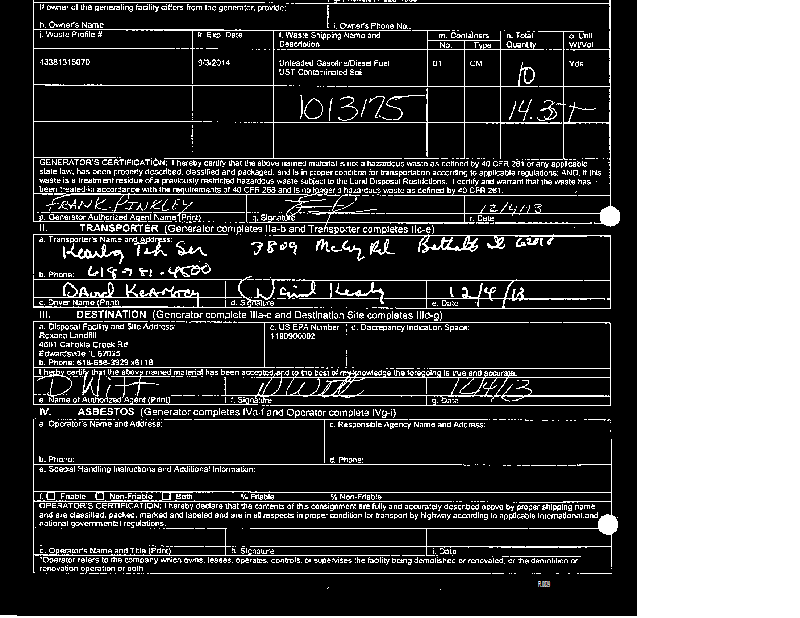 If owner of the generating facility differs from the generator, provide:
h. Owner's Name i. Owner's Phone No.:
j. Waste Profile # k. Exp. Date l. Waste Shipping Name and Description m. Containers No. Type n. Total Quantity o. Unit Wt/Vol
43381315070 9/3/2014 Unleaded Gasoline/Diesel Fuel UST Contaminated Soil 01 CM 10 Yds
1013175 14.35 T
GENERATOR'S CERTIFICATION: I hereby certify that the above named material is not a hazardous waste as defined by 40 CFR 261 or any applicable
state law, has been properly described, classified and packaged, and is in proper condition for transportation according to applicable regulations; AND, if this
waste is a treatment residue of a previously restricted hazardous waste subject to the Land Disposal Restrictions. I certify and warrant that the waste has
been treated in accordance with the requirements of 40 CFR 268 and is no longer a hazardous waste as defined by 40 CFR 261.
FRANK PINKLEY 12/4/13
p. Generator Authorized Agent Name (Print) q. Signature r. Date
II. TRANSPORTER (Generator completes IIa-b and Transporter completes IIc-e)
a. Transporter's Name and Address:
3809 McCoy Rd
b. Phone: 618 781-4500
David 12/4/13
c. Driver Name (Print) d. Signature e. Date
III. DESTINATION (Generator complete IIIa-c and Destination Site completes IIId-g)
a. Disposal Facility and Site Address: c. US EPA Number d. Discrepancy Indication Space:
Roxana Landfill 1190900002
4601 Cahokia Creek Rd
Edwardsville IL 62025
b. Phone: 618-656-3929 x6118
I hereby certify that the above named material has been accepted and to the best of my knowledge the foregoing is true and accurate.
D Witt D Witt 12/4/13
e. Name of Authorized Agent (Print) f. Signature g. Date
IV. ASBESTOS (Generator completes IVa-f and Operator complete IVg-i)
a. Operator's Name and Address: c. Responsible Agency Name and Address:
b. Phone: d. Phone:
e. Special Handling Instructions and Additional Information:
f. Friable Non-Friable Both % Friable % Non-Friable
OPERATOR'S CERTIFICATION: I hereby declare that the contents of this consignment are fully and accurately described above by proper shipping name
and are classified, packed, marked and labeled and are in all respects in proper condition for transport by highway according to applicable international and
national governmental regulations.
g. Operator's Name and Title (Print) h. Signature i. Date
*Operator refers to the company which owns, leases, operates, controls, or supervises the facility being demolished or renovated, or the demolition or
renovation operation or both